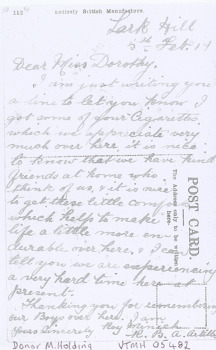 113 Entirely British Manufacture.
Lark Hill
5th Feb. 17
Dear Miss Dorothy.
I am just writing you
a line to let you know I
got some of your Cigarettes,
which we appreciate very
much over here, it is nice
to know that we have kind
friends at home who
think of us, & it is nice
to get these little comforts
which helps to make
life a little more en-
durable over here, I can
tell you we are experiencing
a very hard time here at
present.
Thanking you for remembering
our Boys over here. I am
Yours Sincerely Roy
POST CARD.
The Address only to be written here.
Donor M. Holding VTMH 05482